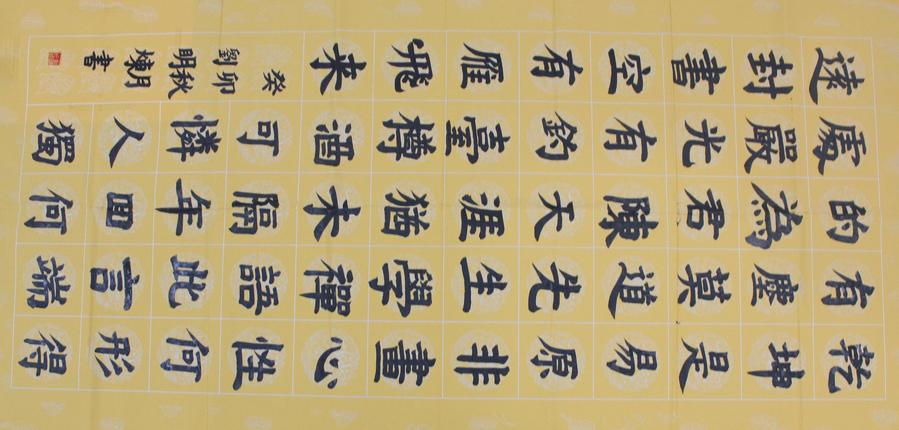 乾坤是易原非畫心性何形得
有塵莫道先生學禪語此言端
的為君陳天涯猶未隔年回何
處嚴光有釣臺樽酒可憐人獨
遠封書空有雁飛来
癸卯秋月
劉明煉書